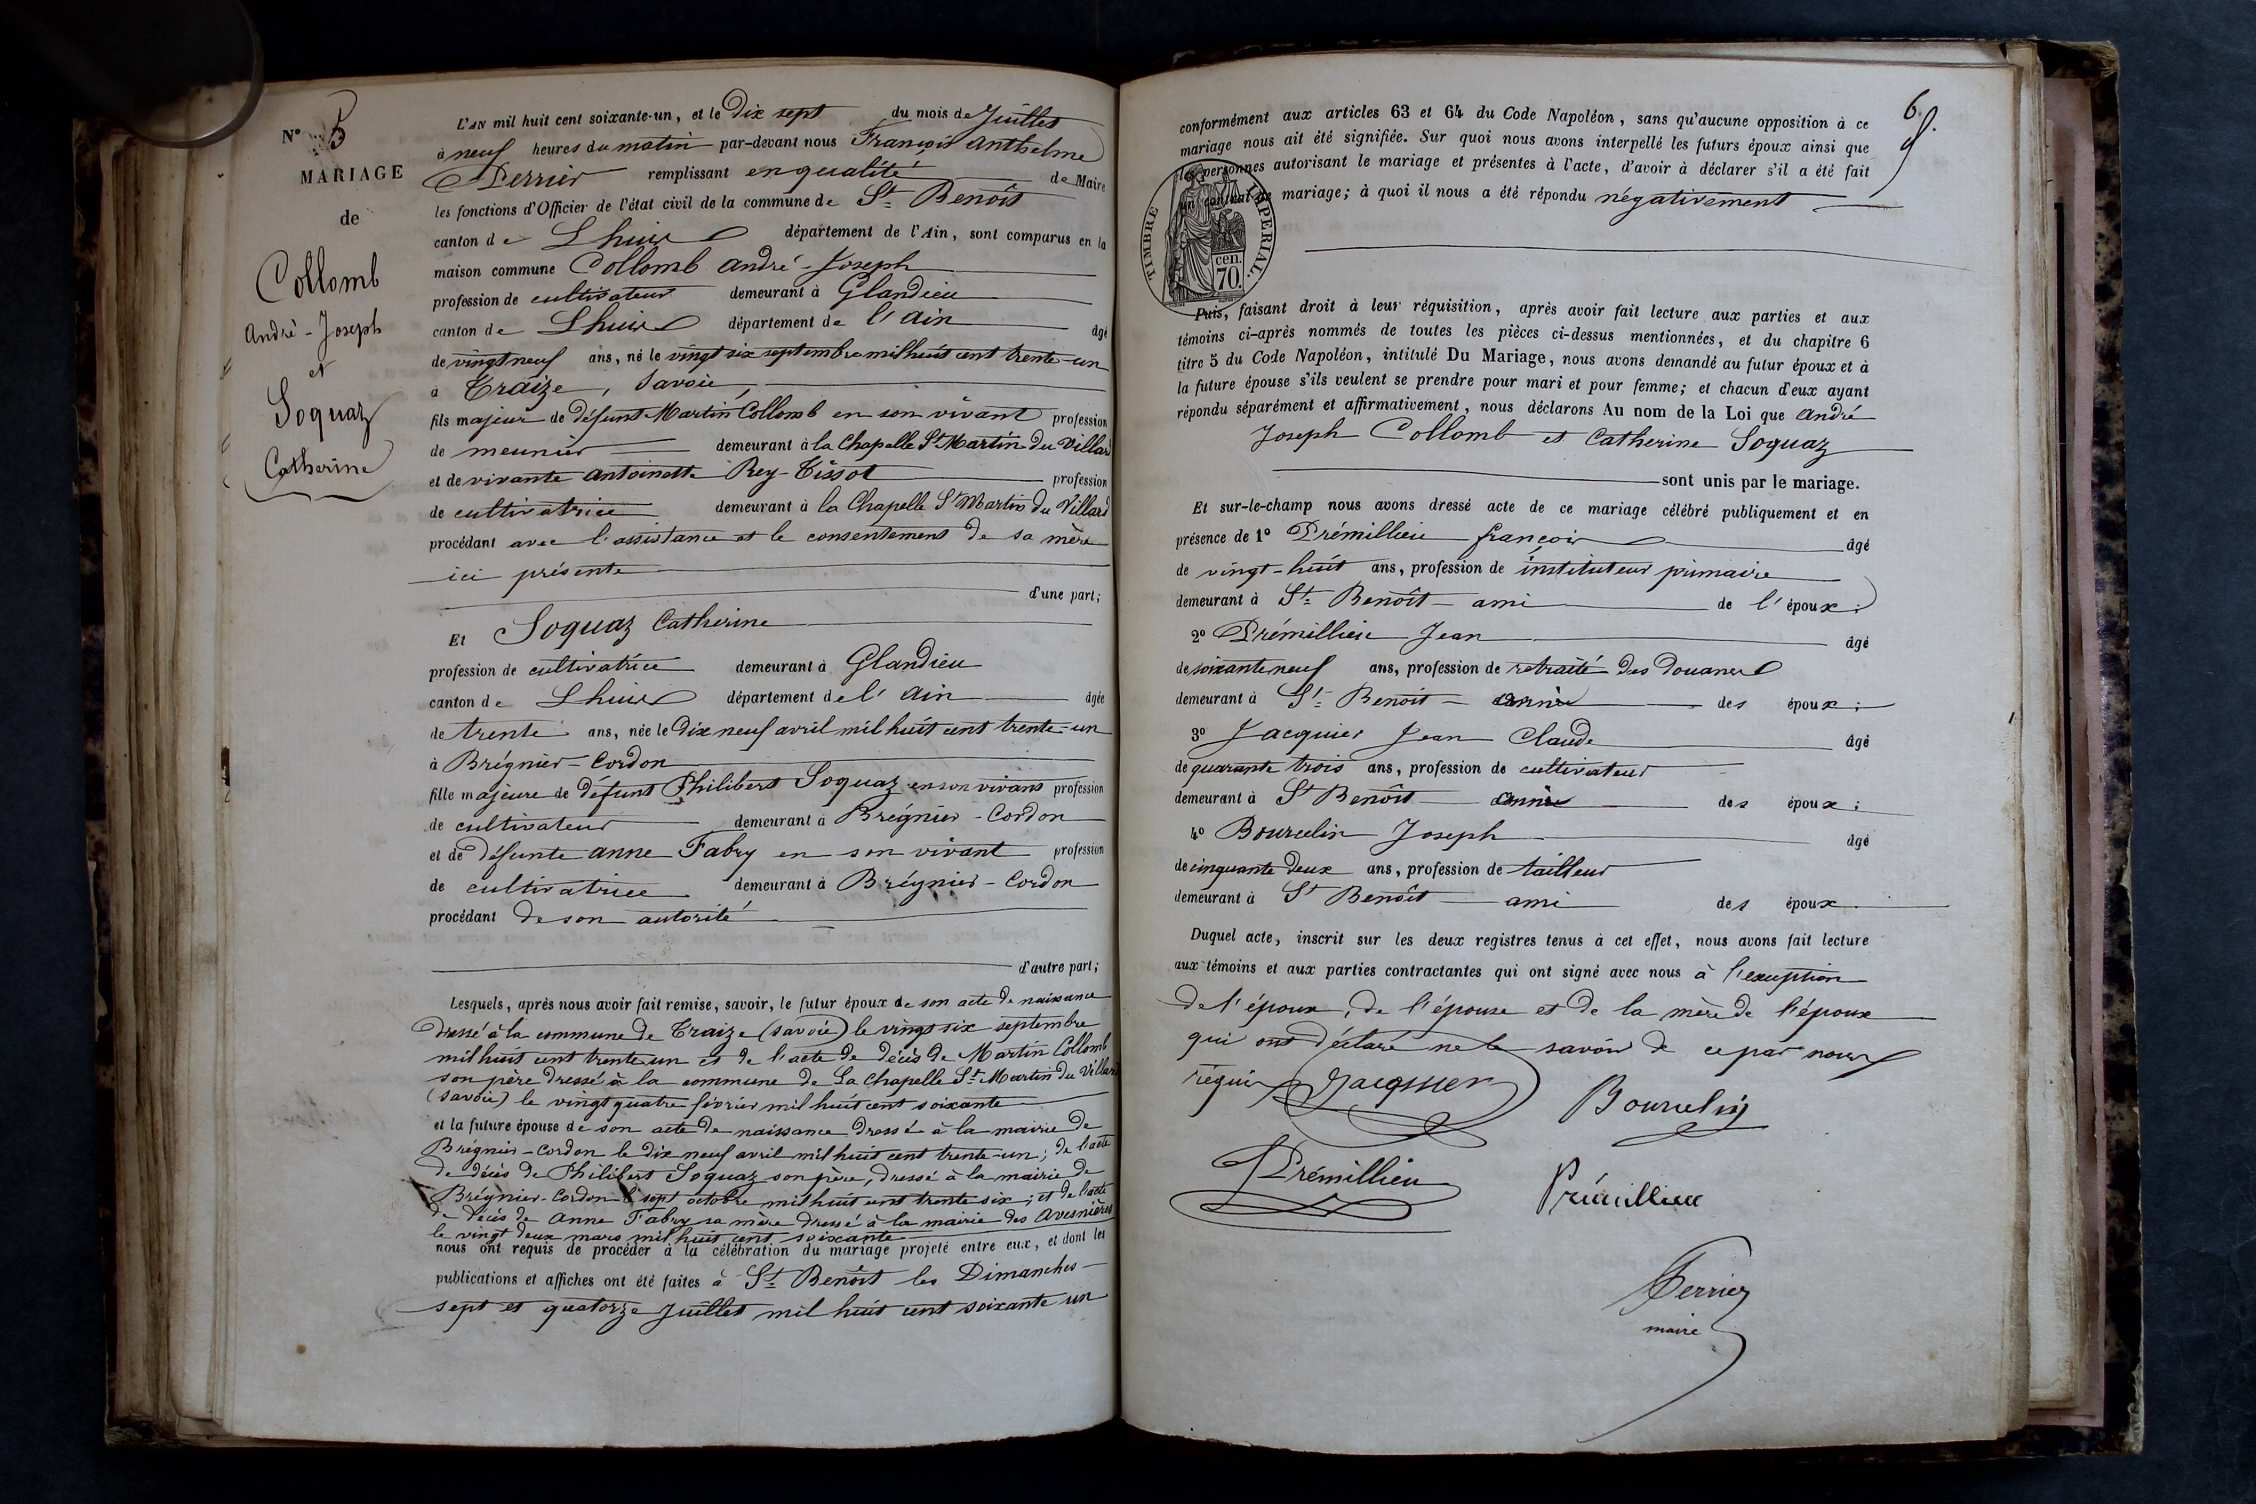 N° 5
MARIAGE
de
Collomb
André-Joseph
et
Soquaz
Catherine
L'AN mil huit cent soixante-un, et le Dix sept du mois de Juillet
à neuf heures du matin par-devant nous François Anthelme
Perrier remplissant en qualité de Maire
les fonctions d'Officier de l'état civil de la commune de St Benoît
canton de Lhuis département de l'Ain, sont comparus en la
maison commune Collomb André-Joseph
profession de cultivateur demeurant à Glandieu
canton de Lhuis département de l'Ain âgé
de vingt neuf ans, né le vingt six septembre mil huit cent trente-un
à Traize, Savoie,
fils majeur de défunt Martin Collomb en son vivant profession
de meunier demeurant à la Chapelle St Martin du Villard
et de vivante Antoinette Rey-Tissot profession
de cultivatrice demeurant à la Chapelle St Martin du Villard
procédant avec l'assistance et le consentement de sa mère
ici présente
d'une part;
Et Soquaz Catherine
profession de cultivatrice demeurant à Glandieu
canton de Lhuis département de l'Ain âgée
de trente ans, née le Dix neuf avril mil huit cent trente-un
à Brégnier-Cordon
fille majeure de défunt Philibert Soquaz en son vivant profession
de cultivateur demeurant à Brégnier-Cordon
et de défunte Anne Fabry en son vivant profession
de cultivatrice demeurant à Brégnier-Cordon
procédant de son autorité
d'autre part;
Lesquels, après nous avoir fait remise, savoir, le futur époux de son acte de naissance
dressé à la commune de Traize (Savoie) le vingt six septembre
mil huit cent trente un et de l'acte de décès de Martin Collomb
son père dressé à la commune de La Chapelle St Martin du Villard
(Savoie) le vingt quatre février mil huit cent soixante
et la future épouse de son acte de naissance dressé à la mairie de
Brégnier-Cordon le dix neuf avril mil huit cent trente-un; de l'acte
de décès de Philibert Soquaz son père, dressé à la mairie de
Brégnier-Cordon le sept octobre mil huit cent trente six; et de l'acte
de décès de Anne Fabry sa mère dressé à la mairie des Avenières
le vingt deux mars mil huit cent soixante
nous ont requis de procéder à la célébration du mariage projeté entre eux, et dont les
publications et affiches ont été faites à St Benoît les Dimanches
sept et quatorze Juillet mil huit cent soixante un
6.
conformément aux articles 63 et 64 du Code Napoléon, sans qu'aucune opposition à ce
mariage nous ait été signifiée. Sur quoi nous avons interpellé les futurs époux ainsi que
les personnes autorisant le mariage et présentes à l'acte, d'avoir à déclarer s'il a été fait
un contrat de mariage; à quoi il nous a été répondu négativement
TIMBRE IMPERIAL.
cen.
70.
Puis, faisant droit à leur réquisition, après avoir fait lecture aux parties et aux
témoins ci-après nommés de toutes les pièces ci-dessus mentionnées, et du chapitre 6
titre 5 du Code Napoléon, intitulé Du Mariage, nous avons demandé au futur époux et à
la future épouse s'ils veulent se prendre pour mari et pour femme; et chacun d'eux ayant
répondu séparément et affirmativement, nous déclarons Au nom de la Loi que André
Joseph Collomb et Catherine Soquaz
sont unis par le mariage.
Et sur-le-champ nous avons dressé acte de ce mariage célébré publiquement et en
présence de 1° Prémillieu françois âgé
de vingt-huit ans, profession de instituteur primaire
demeurant à St Benoît ami de l'époux;
2° Prémillieu Jean âgé
de soixante neuf ans, profession de retraité des Douanes
demeurant à St Benoit ami des époux;
3° Jacquier Jean Claude âgé
de quarante trois ans, profession de cultivateur
demeurant à St Benoît ami des époux;
4° Bourcelin Joseph âgé
de cinquante deux ans, profession de tailleur
demeurant à St Benoît ami des époux.
Duquel acte, inscrit sur les deux registres tenus à cet effet, nous avons fait lecture
aux témoins et aux parties contractantes qui ont signé avec nous à l'exception
de l'époux, de l'épouse et de la mère de l'époux
qui ont déclaré ne le savoir de ce par nous
requis Jacquier Bourcelin
Prémillieu Prémillieu
Perrier
maire